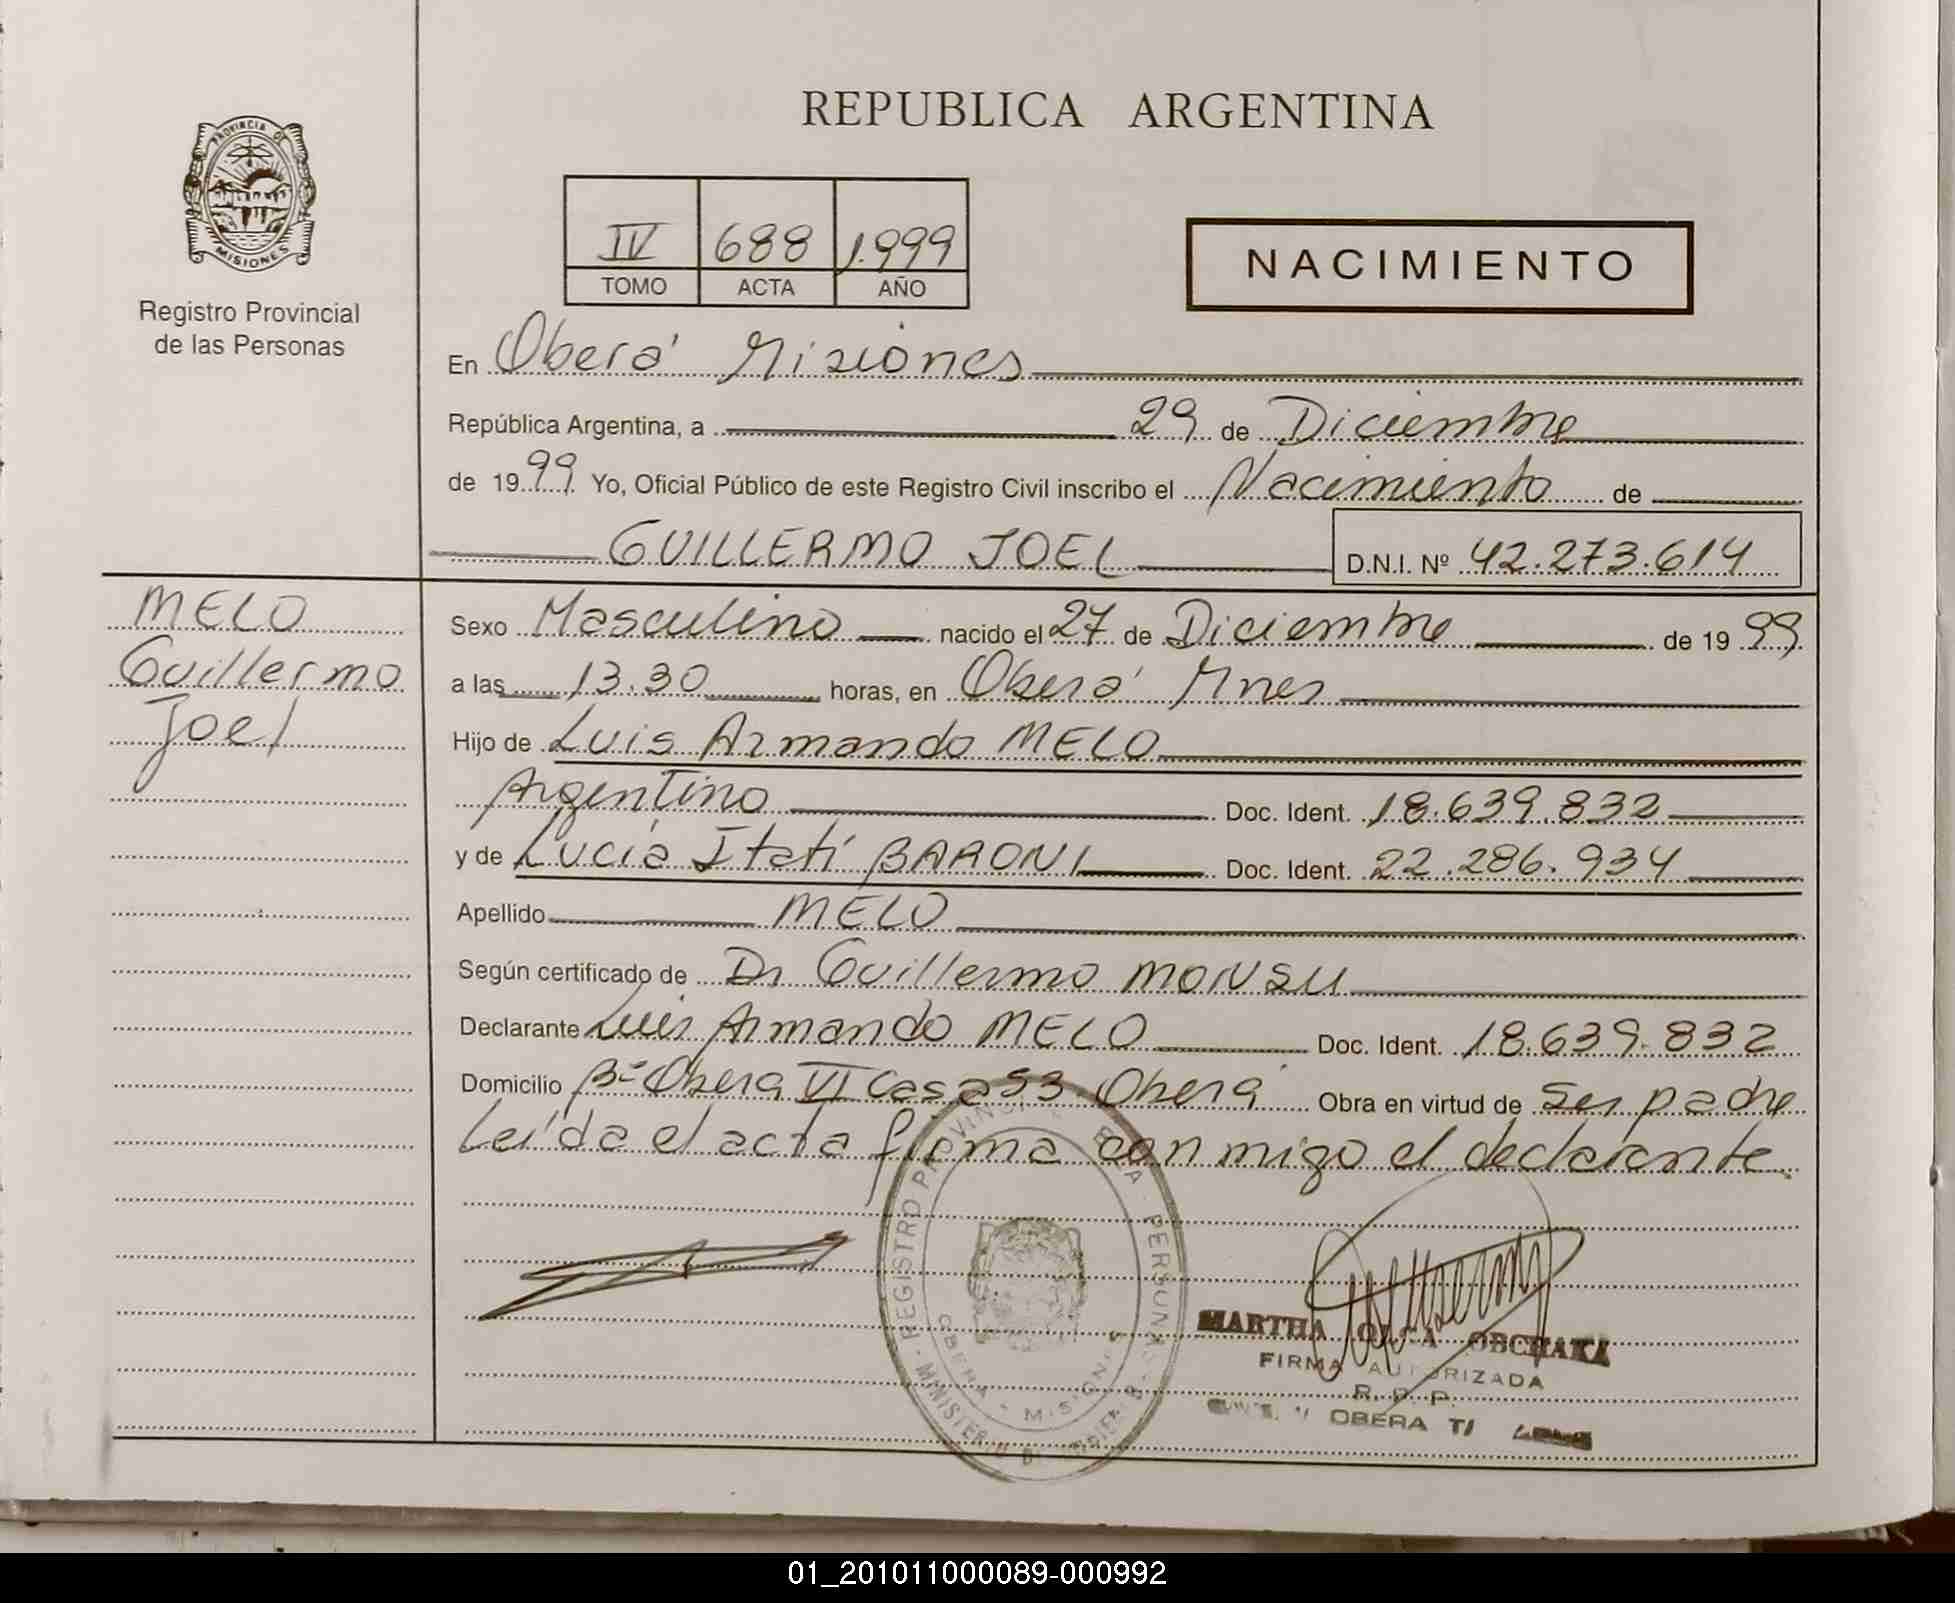 REPUBLICA ARGENTINA
PROVINCIA DE
MISIONES
Registro Provincial
de las Personas
IV 688 1.999
TOMO ACTA AÑO
NACIMIENTO
En Oberá Misiones
República Argentina, a 29 de Diciembre
de 1999 Yo, Oficial Público de este Registro Civil inscribo el Nacimiento de
GUILLERMO JOEL D.N.I. Nº 42.273.614
MELO
Guillermo
Joel
Sexo Masculino nacido el 27 de Diciembre de 1999
a las 13.30 horas, en Oberá Mnes
Hijo de Luis Armando MELO
Argentino Doc. Ident. 18.639.832
y de Lucía Itatí BARONI Doc. Ident. 22.286.934
Apellido MELO
Según certificado de Dr Guillermo MONSU
Declarante Luis Armando MELO Doc. Ident. 18.639.832
Domicilio Bº Oberá VI Casa 53 Oberá Obra en virtud de Ser padre
Leída el acta firma conmigo el declarante
REGISTRO PROVINCIAL PERSONAS
MINISTERIO
OBERA - MISIONES
MARTHA OLGA OBCHATA
FIRMA AUTORIZADA
R. P. P.
OBERA
01_201011000089-000992